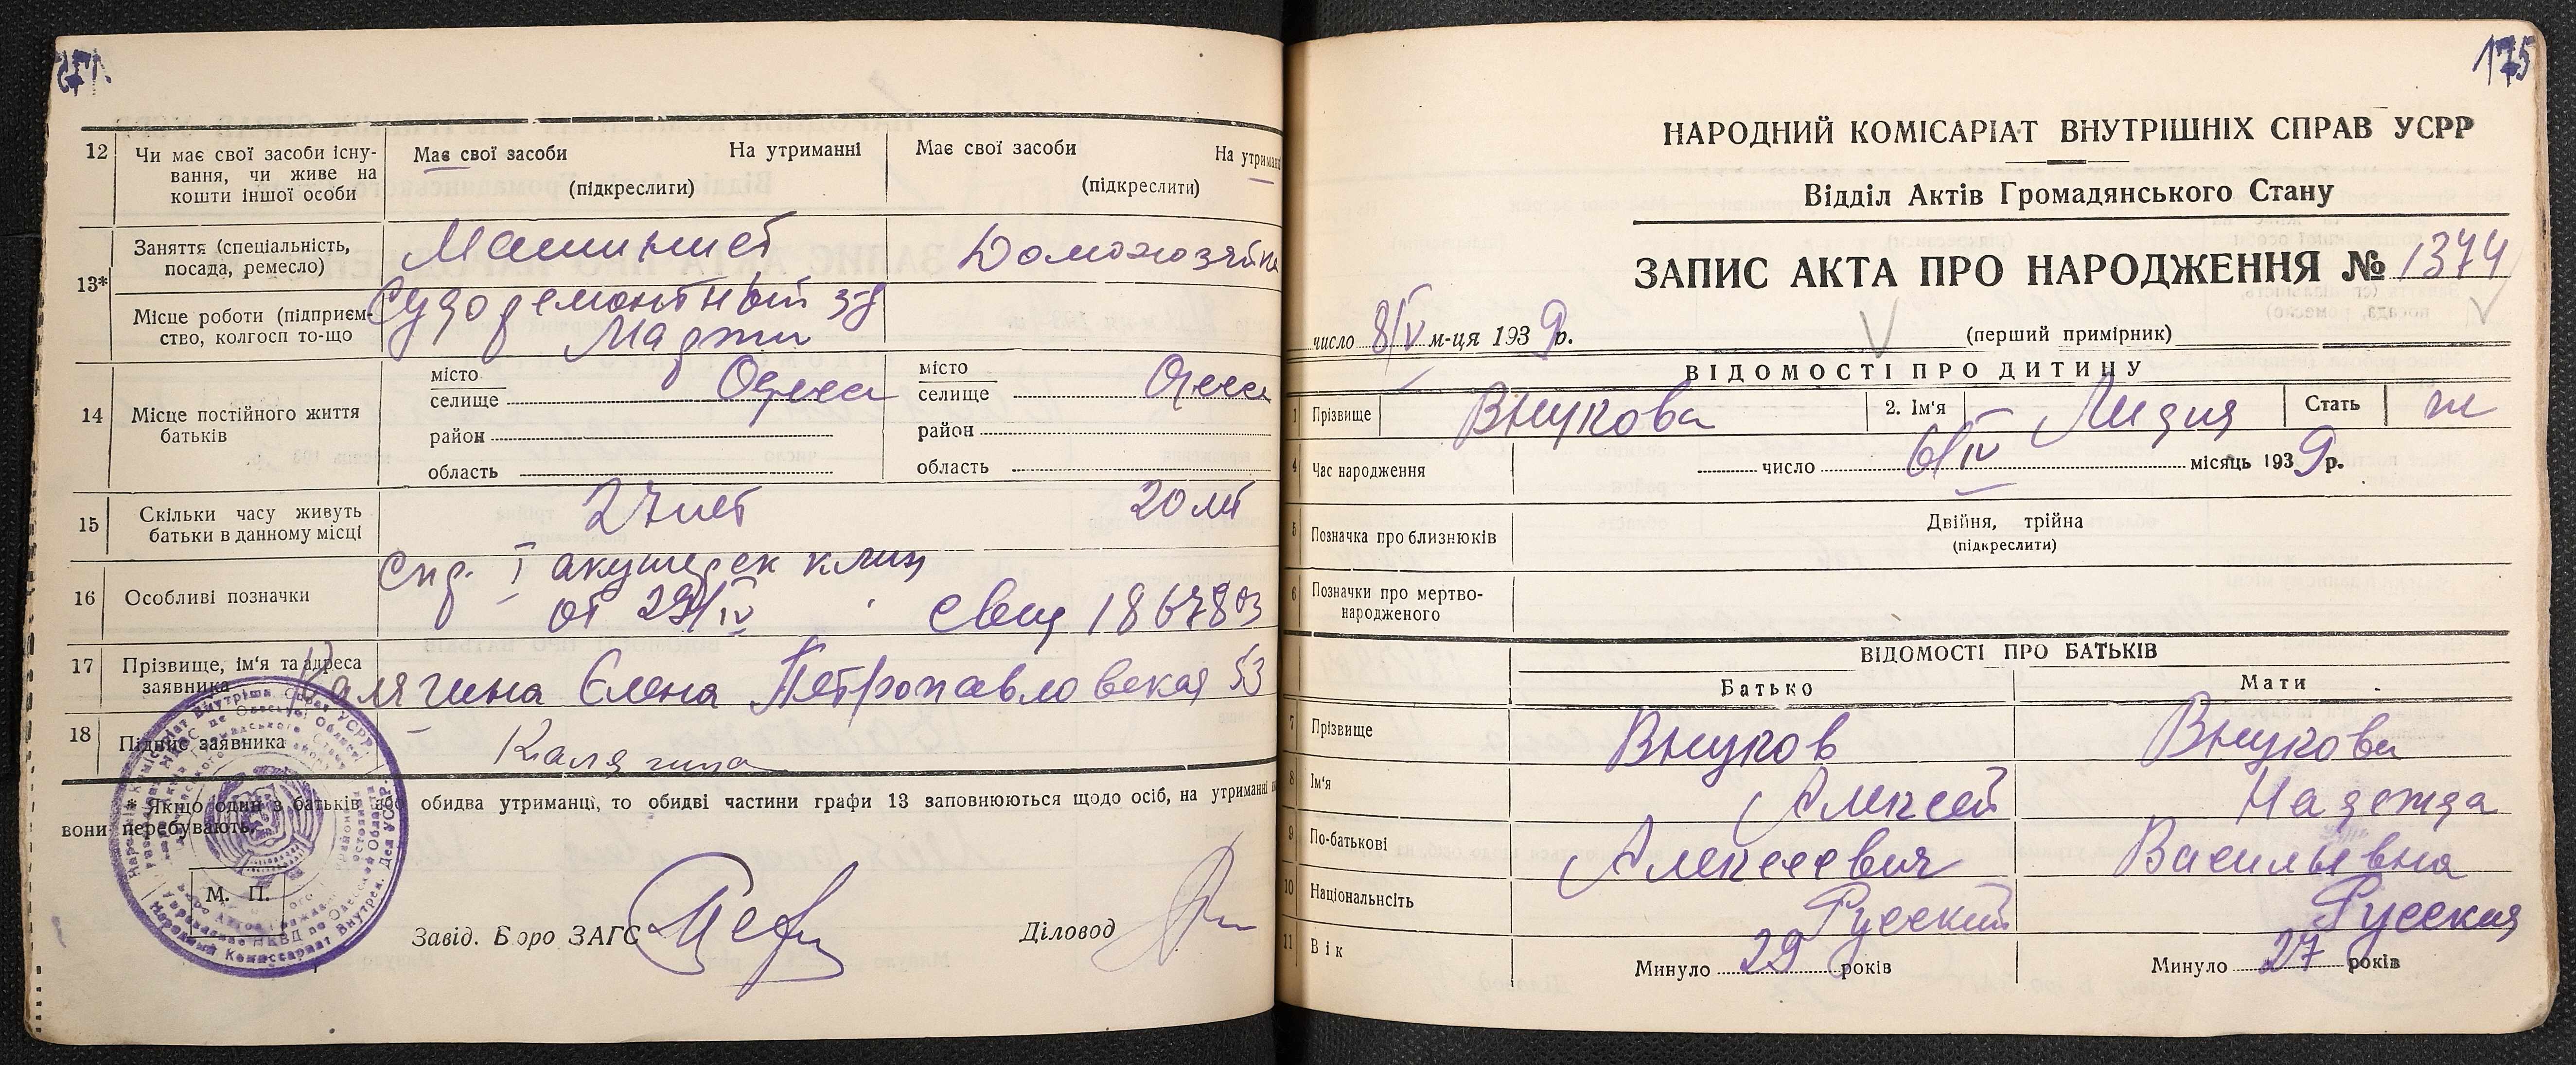 175
12 Чи має свої засоби існу-
вання, чи живе на
кошти іншої особи
Має свої засоби На утриманні
(підкреслити)
Має свої засоби На утриманні
(підкреслити)
13* Заняття (спеціальність,
посада, ремесло)
Машинист
Домохозяйка
Місце роботи (підприєм-
ство, колгосп то-що
Судоремонтный з-д
Марти
14 Місце постійного життя
батьків
місто
селище Одесса
район
область
місто
селище Одесса
район
область
15 Скільки часу живуть
батьки в данному місці
27 лет
20 лет
16 Особливі позначки
Спр. I акушерск клин
от 29/IV свид 1867803
17 Прізвище, ім'я та адреса
заявника
Калягина Єлена Петропавловская 53
18 Підпис заявника
Калягина
* Якщо один з батьків або обидва утриманці, то обидві частини графи 13 заповнюються щодо осіб, на утриманні
вони перебувають.
М. П.
Завід. Бюро ЗАГС
Діловод
175
НАРОДНИЙ КОМІСАРІАТ ВНУТРІШНІХ СПРАВ УСРР
Відділ Актів Громадянського Стану
ЗАПИС АКТА ПРО НАРОДЖЕННЯ № 1374
число 8/V м-ця 1939р.
(перший примірник)
ВІДОМОСТІ ПРО ДИТИНУ
1 Прізвище Внукова 2. Ім'я Лидия Стать ж
4 Час народження число 6/IV місяць 1939р.
5 Позначка про близнюків
Двійня, трійна
(підкреслити)
6 Позначки про мертво-
народженого
ВІДОМОСТІ ПРО БАТЬКІВ
Батько Мати
7 Прізвище Внуков Внукова
8 Ім'я Алексей Надежда
9 По-батькові Алексеевич Васильевна
10 Національність Русский Русская
11 Вік Минуло 29 років Минуло 27 років